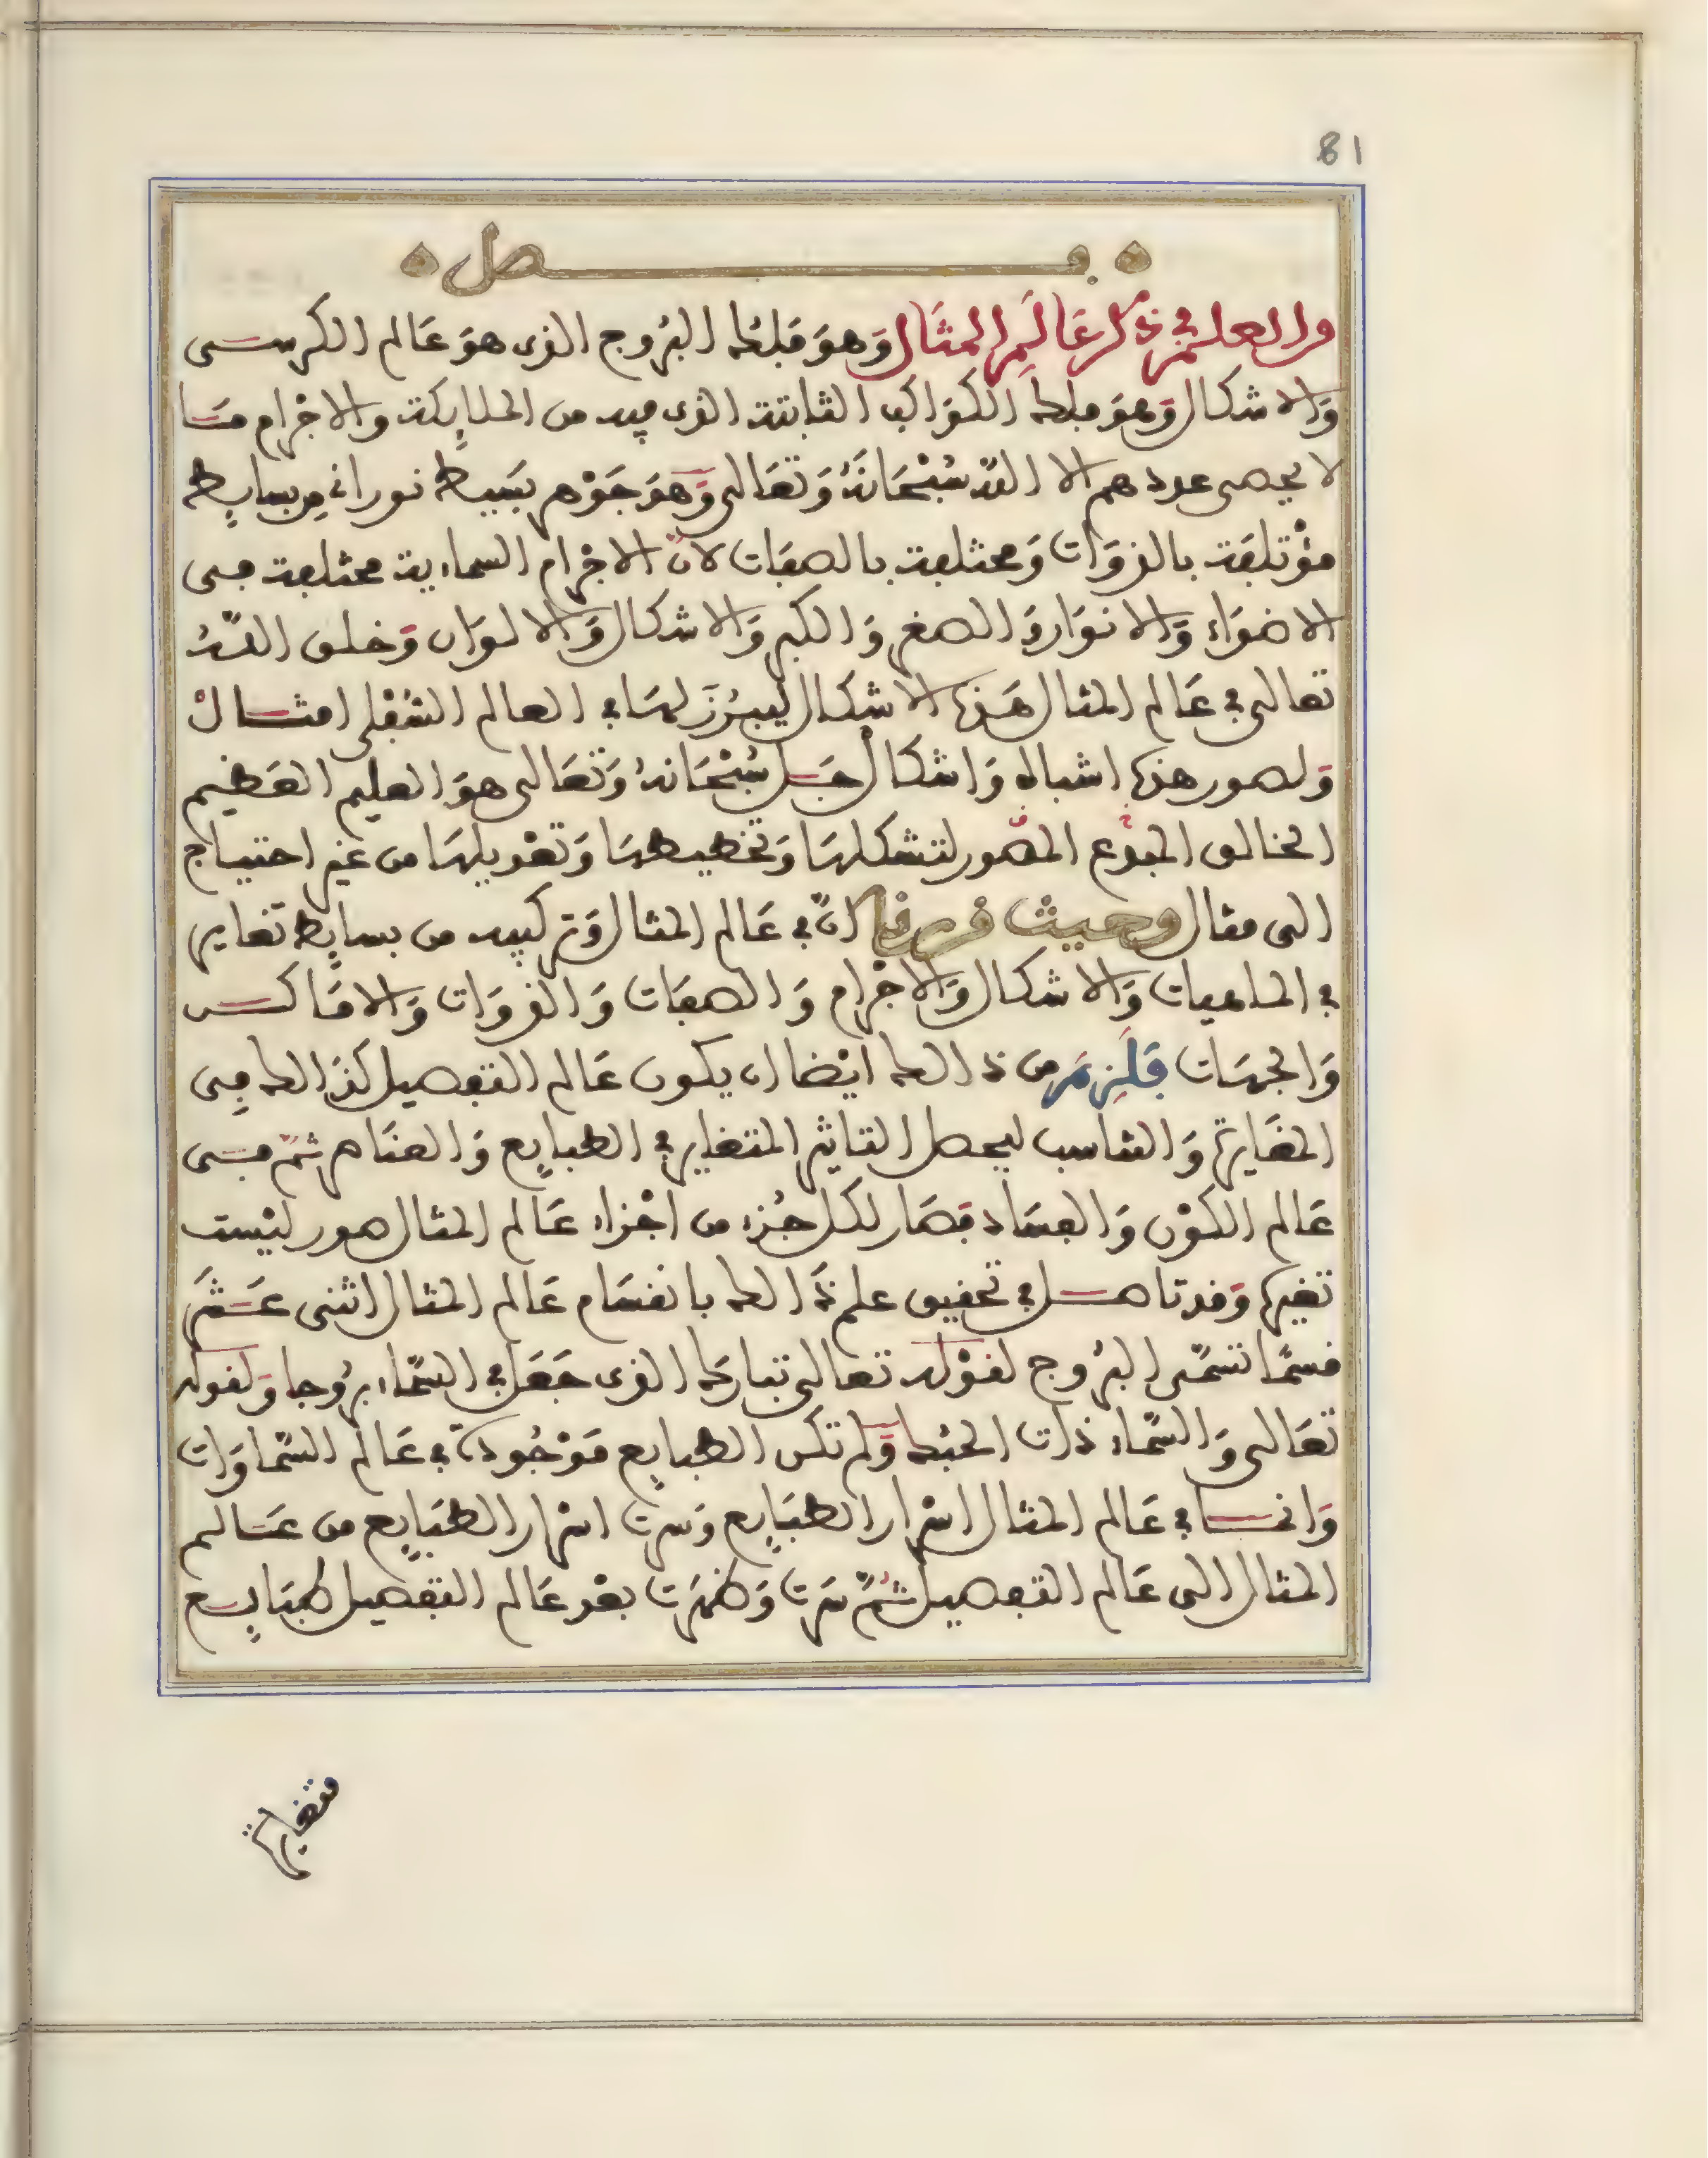 81
فصل
من العلم في ذكر عَالَمِ المثَال وَهوَ فَلَك البُروج الذى هوَ عَالم الكرسى
وَالاشكال وَهوَ فلك الكوَاكب الثابتة الذى فيه من الملايِكة والاجْرام مَا
لا يحصى عددهم الا اللّه سُبْحَانَهُ وَتعَالى وَهوَ جَوْهر بَسِيط نورانى مِن بسايِط
مؤتلفَة بالذوَات وَمختلفة بالصفَات لانّ الاجْرام السماوية مختلفة فى
الاضوَاء وَالانوَار وَالصغر وَالكبر وَالاشكال وَالالوَان وَخلق اللّهُ
تعالى في عَالم المثال هَذه الاشكال ليبْرُزَ لهَا في العالم السُفلى امثال
وَلصور هذه اشباه وَاشكال جَل سُبْحَانهُ وَتعَالى هوَ العليم العَظيم
الخالق المبدع المصَّور لتشكلهَا وَتخطيطهَا وَتعْديلهَا من غيْر احتياج
الى مثال وحيث قررنا انّ في عَالم المثال وَتركيبه من بسايِط تغاير
في الماهيات وَالاشكال وَالاجْرام وَالصفَات وَالذوَات وَالامَاكن
وَالجهَات فَلَزِمَ من ذالك ايْضا ان يكون عَالم التفصيل كذَالك فِى
المغَايرة وَالتناسب ليحصل التاثير المتغاير في الطبايِع وَالعنَاصر ثمّ فى
عَالم الكوْن وَالفسَاد فصَار لكل جُزء من اجْزاء عَالم المثال صور ليْست
تغيرها وَقد تاصل في تحقيق علم ذَالك بانقسَام عَالم المثال اثنى عَشَر
قسمًا تسَمّى البُروج لقوْله تعالى تبارك الذى جَعَل في السّماء برُوجا وَلقوله
تعَالى وَالسّماء ذات الحبُك وَلم تكن الطبايِع مَوْجُودة في عَالم السّماوَات
وَانما في عَالم المثال اسْرار الطبَايِع وَسرت اسْرار الطبَايِع من عَالم
المثال الى عَالم التفصيل ثمّ سَرت وَظهرَت بعْد عَالم التفصيل طبَايِع
متغايرة